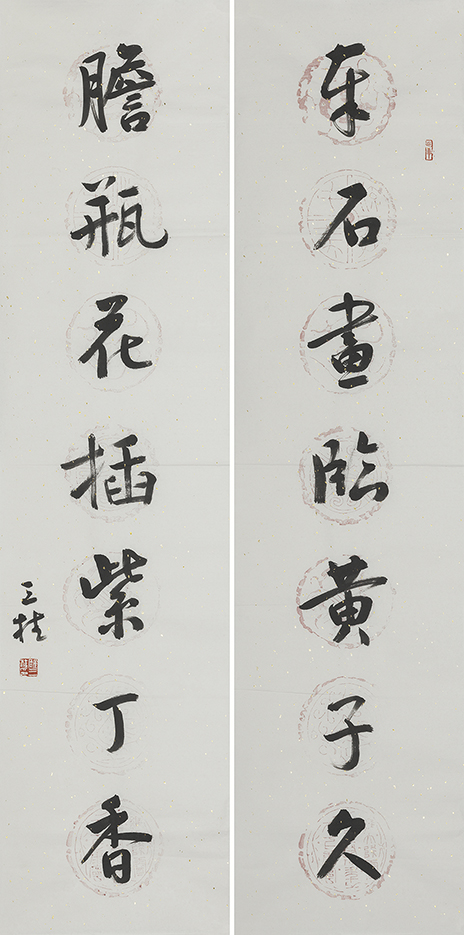 拳石畫臨黃子久
膽瓶花插紫丁香
三桂